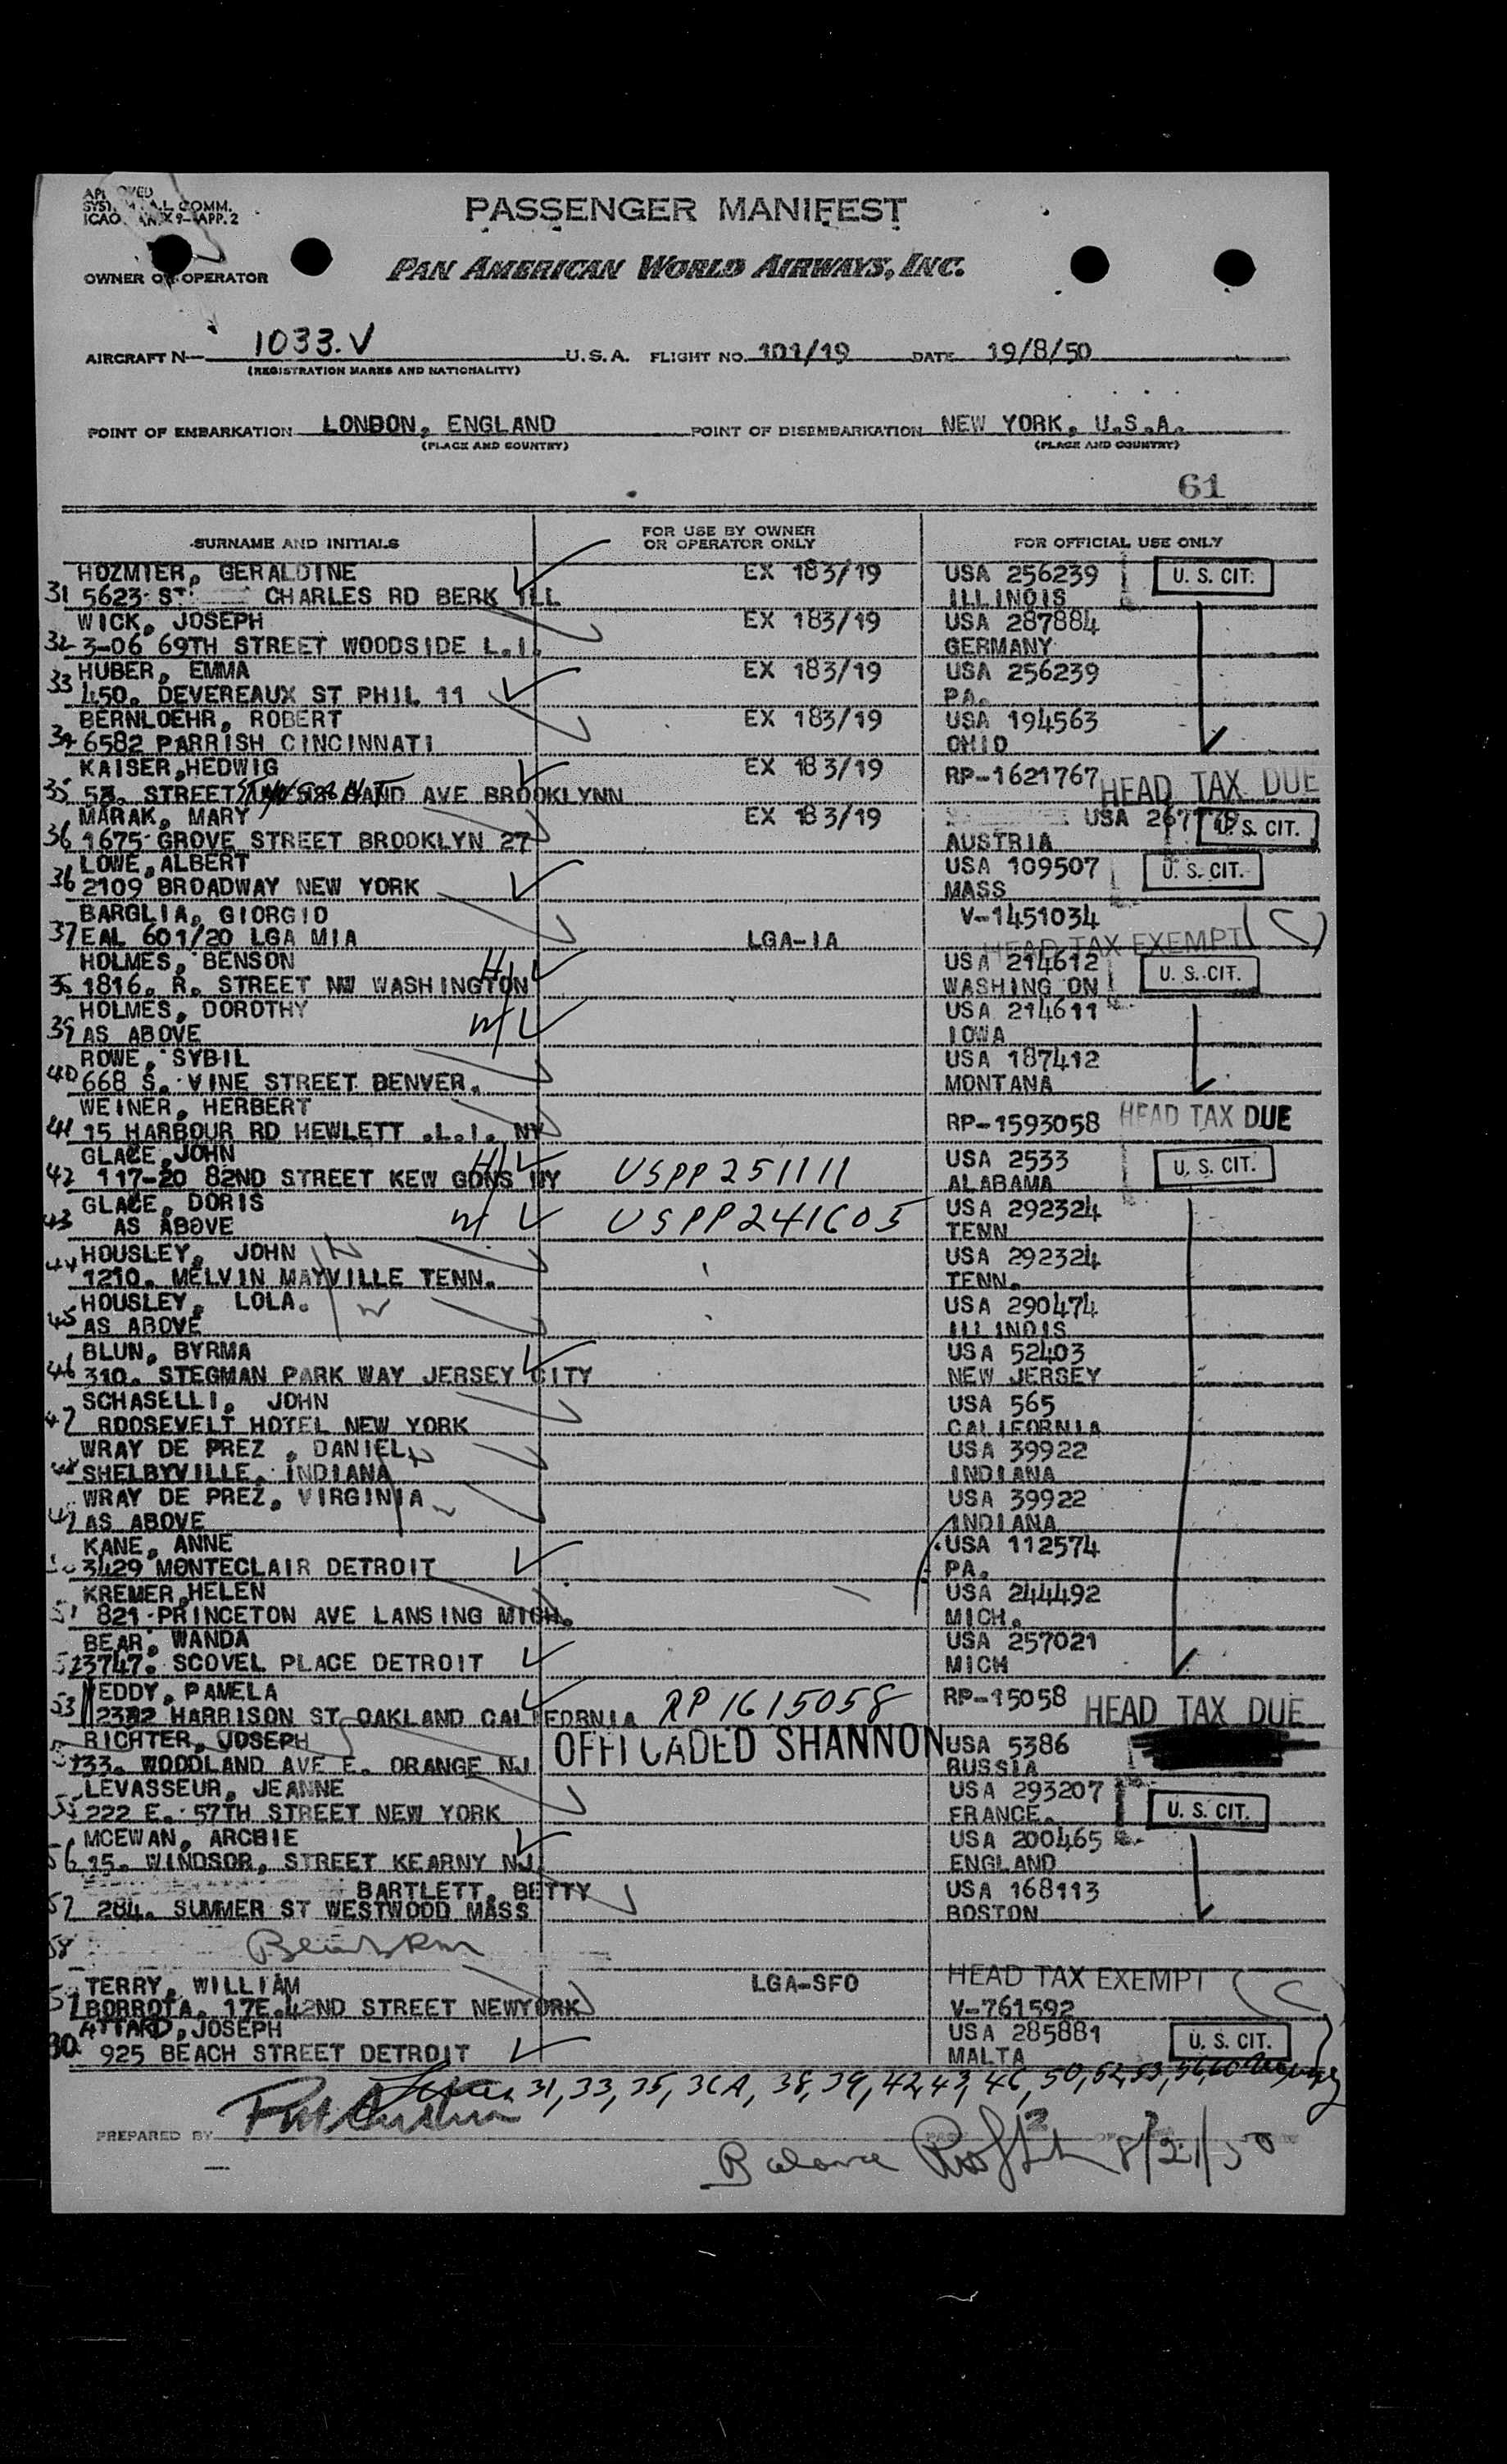 PASSENGER MANIFEST
ICAO ANNEX 9-APP. 2
OWNER OR OPERATOR
PAN AMERICAN WORLD AIRWAYS, INC.
AIRCRAFT N— 1033.V U.S.A. FLIGHT NO. 101/19 DATE 19/8/50
(REGISTRATION MARKS AND NATIONALITY)
POINT OF EMBARKATION LONDON, ENGLAND POINT OF DISEMBARKATION NEW YORK, U.S.A.
(PLACE AND COUNTRY) (PLACE AND COUNTRY)
61
SURNAME AND INITIALS FOR USE BY OWNER OR OPERATOR ONLY FOR OFFICIAL USE ONLY
HOZMIER, GERALDINE EX 183/19 USA 256239 U. S. CIT.
31 5623 ST CHARLES RD BERK ILL ILLINOIS
WICK, JOSEPH EX 183/19 USA 287884
32 3-06 69TH STREET WOODSIDE L.I. GERMANY
HUBER, EMMA EX 183/19 USA 256239
33 450. DEVEREAUX ST PHIL 11 PA.
BERNLOEHR, ROBERT EX 183/19 USA 194563
34 6582 PARRISH CINCINNATI OHIO
KAISER,HEDWIG EX 183/19 RP-1621767 HEAD TAX DUE
35 STREET AND AVE BROOKLYNN
MARAK, MARY EX 183/19 USA U. S. CIT.
36 1675 GROVE STREET BROOKLYN 27 AUSTRIA
LOWE,ALBERT USA 109507 U. S. CIT.
36 2109 BROADWAY NEW YORK MASS
BARGLIA, GIORGIO V-1451034
37 EAL 601/20 LGA MIA LGA-IA HEAD TAX EXEMPT (C)
HOLMES, BENSON H USA 214612 U. S. CIT.
1816. R. STREET NW WASHINGTON WASHING ON
HOLMES, DOROTHY W USA 214611
39 AS ABOVE IOWA
ROWE, SYBIL USA 187412
40 668 S. VINE STREET DENVER. MONTANA
WEINER, HERBERT RP-1593058 HEAD TAX DUE
41 15 HARBOUR RD HEWLETT .L.I. NY
GLACE,JOHN H USA 2533 U. S. CIT.
42 117-20 82ND STREET KEW GDNS NY USPP 251111 ALABAMA
GLACE, DORIS W USPP241605 USA 292324
43 AS ABOVE TENN
HOUSLEY, JOHN H USA 292324
44 1210. MELVIN MAYVILLE TENN. TENN.
HOUSLEY, LOLA. W USA 290474
45 AS ABOVE ILLINOIS
BLUN, BYRMA USA 52403
46 310. STEGMAN PARK WAY JERSEY CITY NEW JERSEY
SCHASELLI, JOHN USA 565
47 ROOSEVELT HOTEL NEW YORK CALIFORNIA
WRAY DE PREZ , DANIEL H USA 39922
48 SHELBYVILLE, INDIANA INDIANA
WRAY DE PREZ, VIRGINIA W USA 39922
49 AS ABOVE INDIANA
KANE, ANNE USA 112574
3429 MONTECLAIR DETROIT PA.
KREMER,HELEN USA 244492
51 821 PRINCETON AVE LANSING MICH. MICH.
BEAR, WANDA USA 257021
52 3747. SCOVEL PLACE DETROIT MICH
EDDY, PAMELA RP-15058 HEAD TAX DUE
53 HARRISON ST OAKLAND CALIFORNIA RP 1615058
RICHTER, JOSEPH OFFLOADED SHANNON USA 5386
133. WOODLAND AVE E. ORANGE NJ RUSSIA
LEVASSEUR, JEANNE USA 293207 U. S. CIT.
55 222 E. 57TH STREET NEW YORK FRANCE.
MCEWAN, ARCBIE USA 200465
56 15. WINDSOR, STREET KEARNY NJ. ENGLAND
BARTLETT, BETTY USA 168113
57 284. SUMMER ST WESTWOOD MASS BOSTON
58
TERRY, WILLIAM LGA-SFO HEAD TAX EXEMPT (C)
BORROTA. 17E.42ND STREET NEWYORK V-761592
ATTARD,JOSEPH USA 285881 U. S. CIT.
925 BEACH STREET DETROIT MALTA
31, 33, 35, 36A, 38, 39, 42, 43, 46, 50, 52, 53, 56, 60
PREPARED BY
Balance 8/21/50